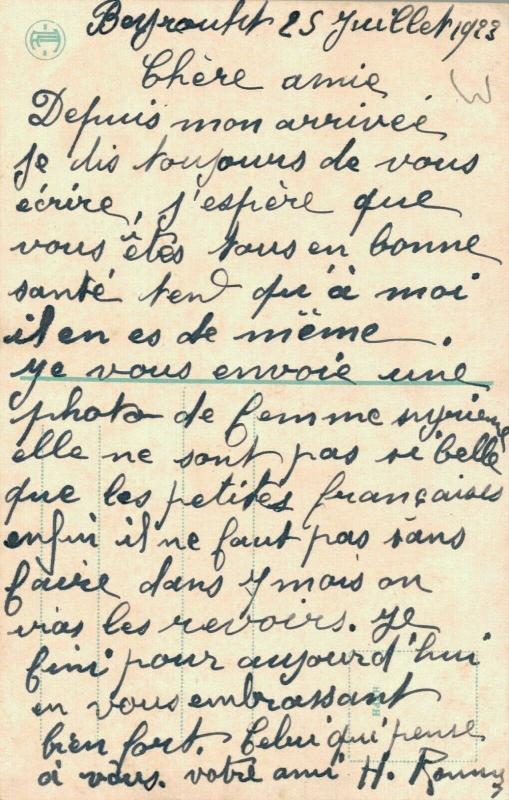 Beyrouht 25 Juillet 1923
Chère amie
Depuis mon arrivée
je dis toujours de vous
écrire, j'espère que
vous êtes tous en bonne
santé tend qu'à moi
il en es de même.
Je vous envoie une
photo de femme syrienne
elle ne sont pas si belle
que les petites françaises
enfin il ne faut pas sans
faire dans 7 mois on
iras les revoirs. Je
fini pour aujourd'hui
en vous embrassant
bien fort. Celui qui pense
à vous. votre ami H.